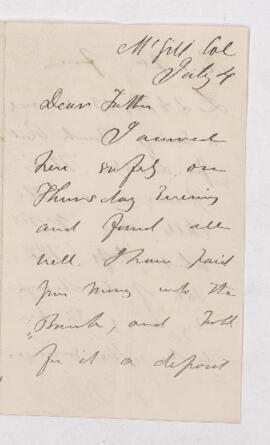 McGill Col
July 4
Dear Father
I arrived
here safely on
Thursday evening
and found all
well. I have paid
your money into the
Bank, and hold
for it a deposit